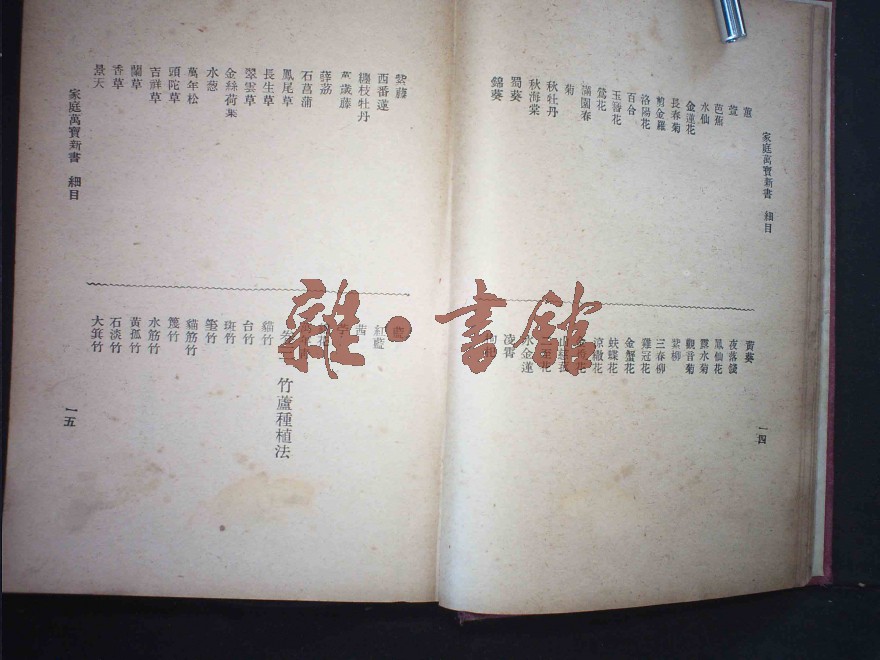 家庭萬寶新書 細目
一四
蕙
萱
芭蕉
水仙
金蓮花
長春菊
剪金羅
洛陽花
百合
玉簪花
鶯花
滿園春
菊
秋牡丹
秋海棠
蜀葵
錦葵
黃葵
夜落錢
鳳仙花
露水菊
觀音菊
紫柳
三春柳
雞冠花
金蟹花
蛺蝶花
淩霄
紫藤
西番蓮
纏枝牡丹
萬歲藤
薜荔
石菖蒲
鳳尾草
長生草
翠雲草
金絲荷葉
水葱
萬年松
頭陀草
吉祥草
蘭草
香草
景天
紅藍
茜
卷三 竹蘆種植法
貓竹
台竹
斑竹
貓筋竹
篾竹
水筋竹
黃孤竹
石淡竹
大箕竹
家庭萬寶新書 細目
一五
雜·書館